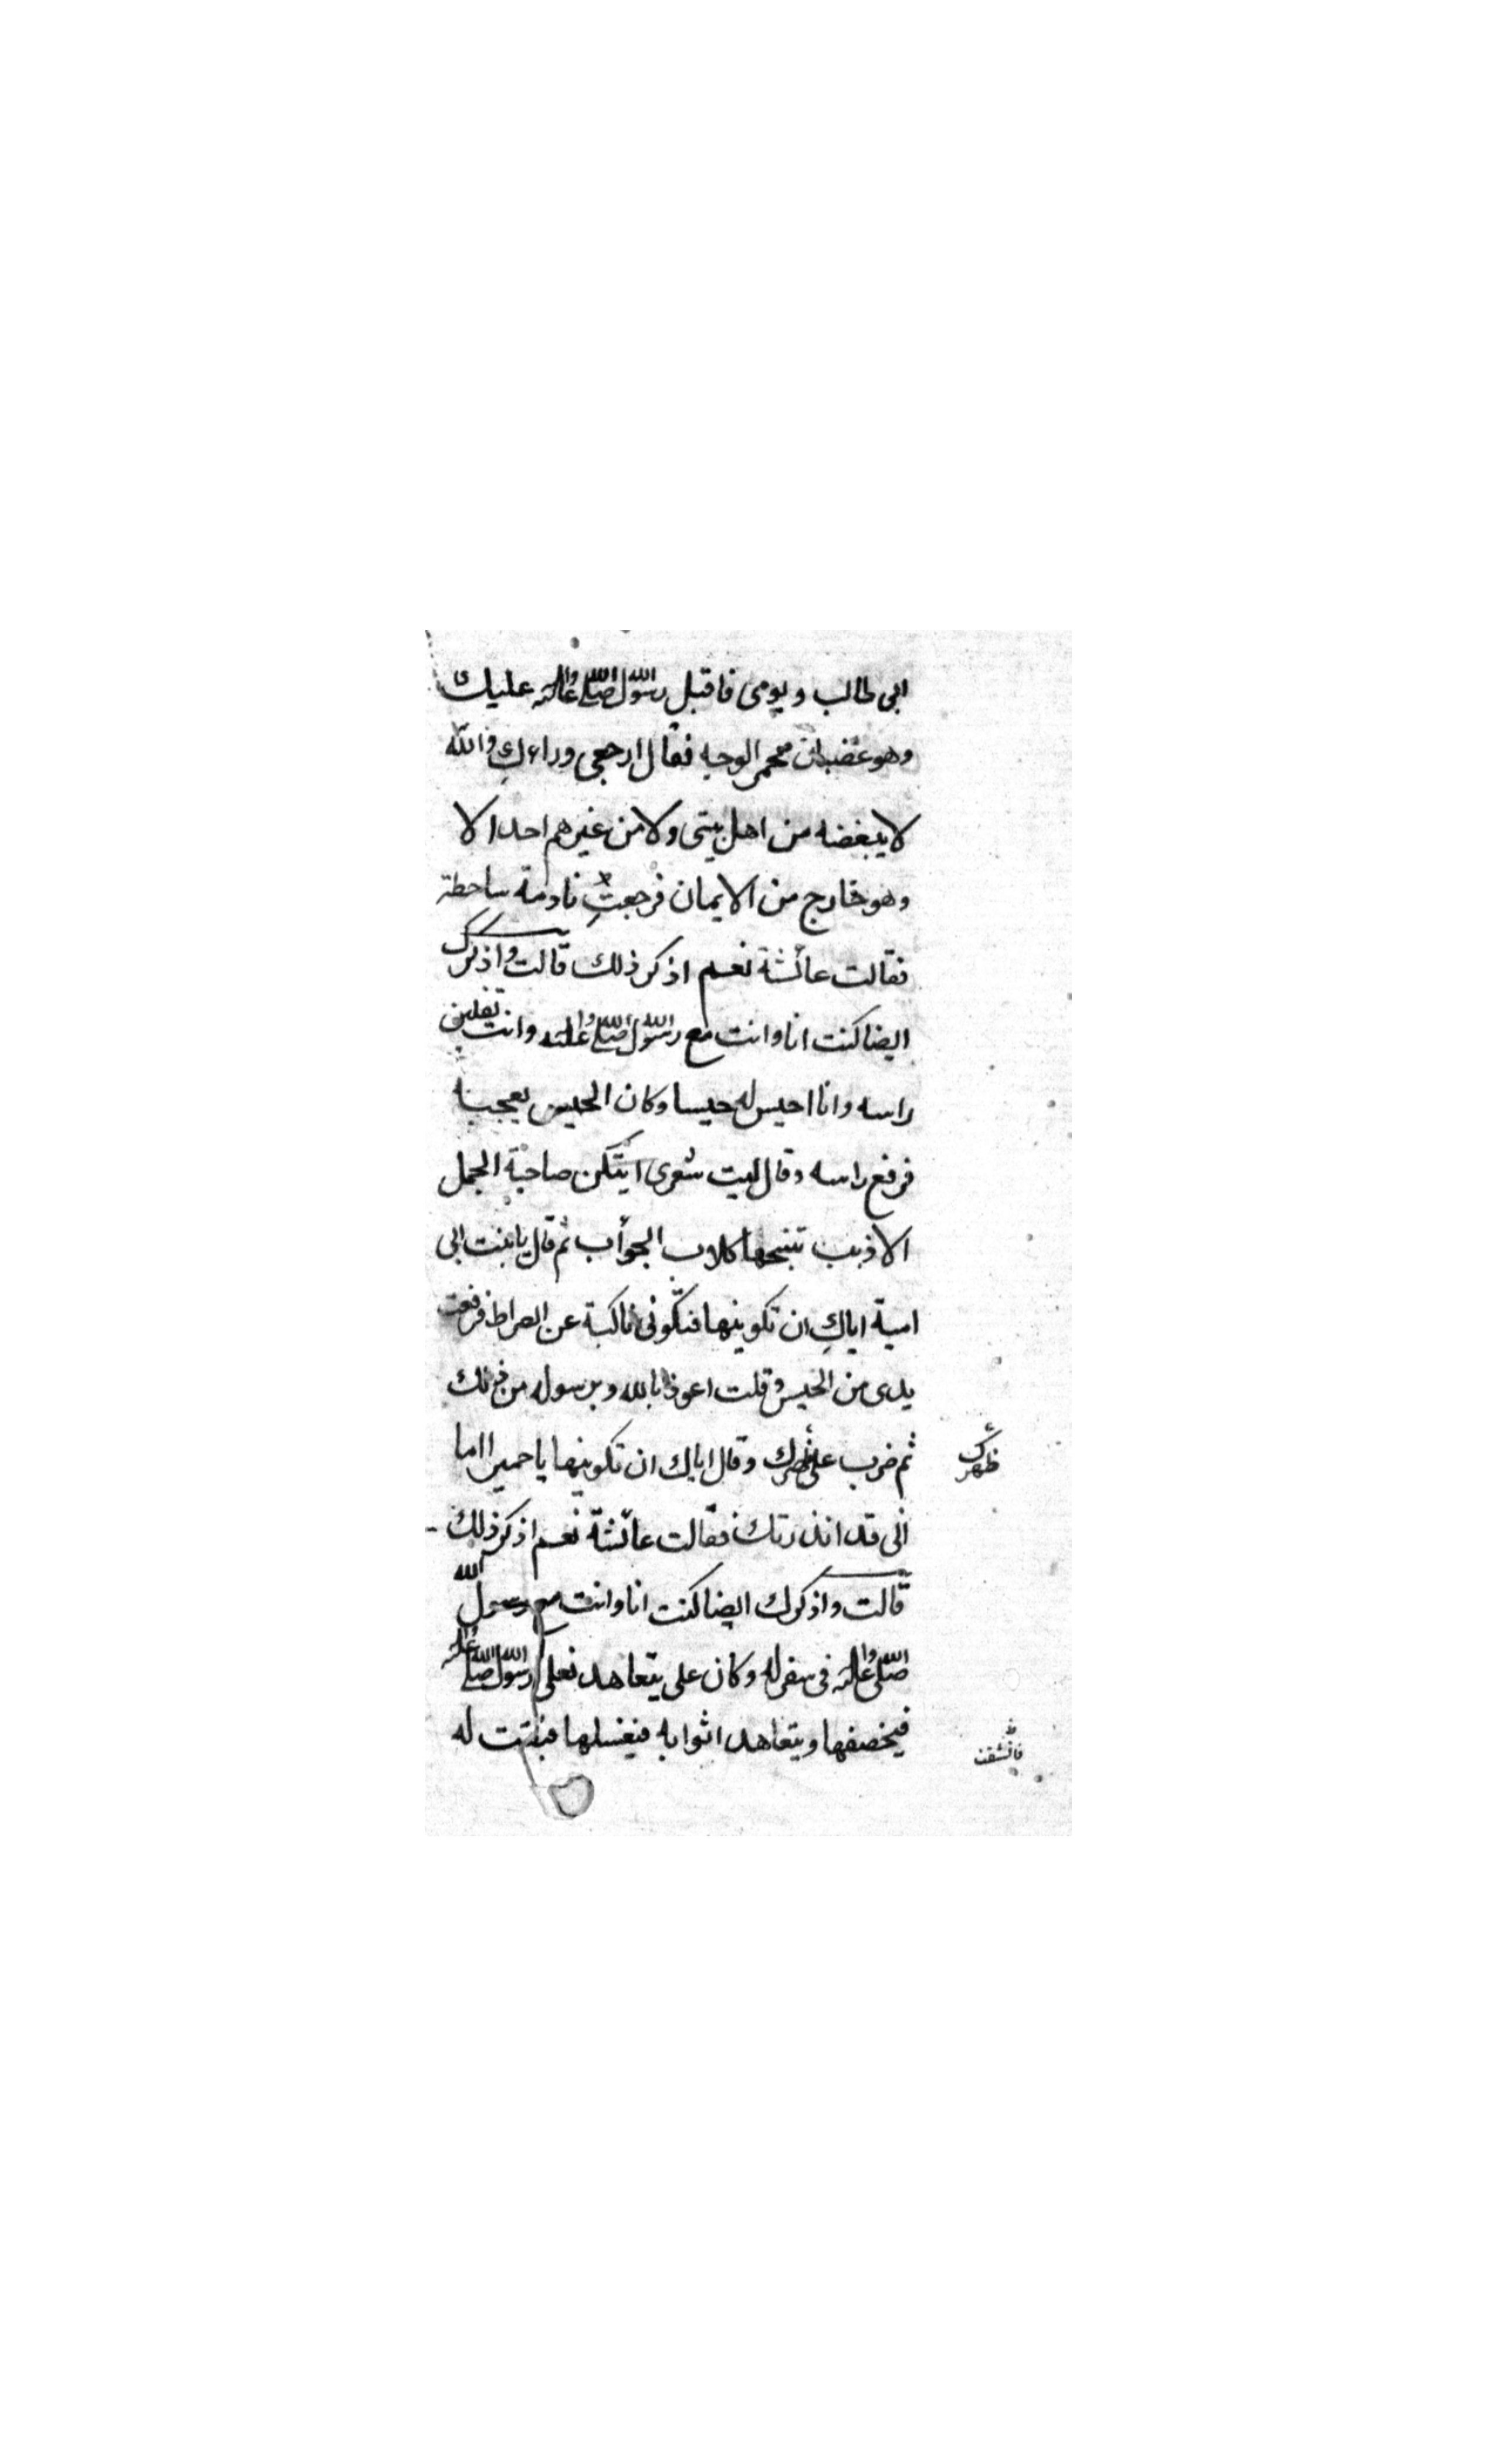 ابى طالب ويومى فاقبل رسول الله صلى الله عليه واله عليك
وهو غضبان محمر الوجه فقال ارجعى وراءكِ والله
لا يبغضه من اهل بيتى ولا من غيرهم احد الا
وهو خارج من الايمان فرجعتِ نادمة ساخطة
فقالت عائشة نعم اذكر ذلك قالت واذكرك
ايضا كنت انا وانت مع رسول الله صلى الله عليه واله وانت تفلين
راسه وانا احيس له حيسا وكان الحيس يعجبه
فرفع راسه وقال ليت شعرى ايتكن صاحبة الجمل
الاذبب تنبحها كلاب الحوأب ثم قال يا بنت ابى
امية اياكِ ان تكونيها فتكونى ناكبة عن الصراط فرفعت
يدى من الحيس وقلت اعوذ بالله وبرسوله من ذلك
ثم ضرب على ظهرك وقال اياك ان تكونيها يا حميرا اما
انى قد انذرتك فقالت عائشة نعم اذكر ذلك
قالت واذكرك ايضا كنت انا وانت مع رسول الله
صلى الله عليه واله فى سفر له وكان على يتعاهد نعلى رسول الله صلى الله عليه واله
فيخصفها ويتعاهد اثوابه فيغسلها فنقبت له
ظهرك